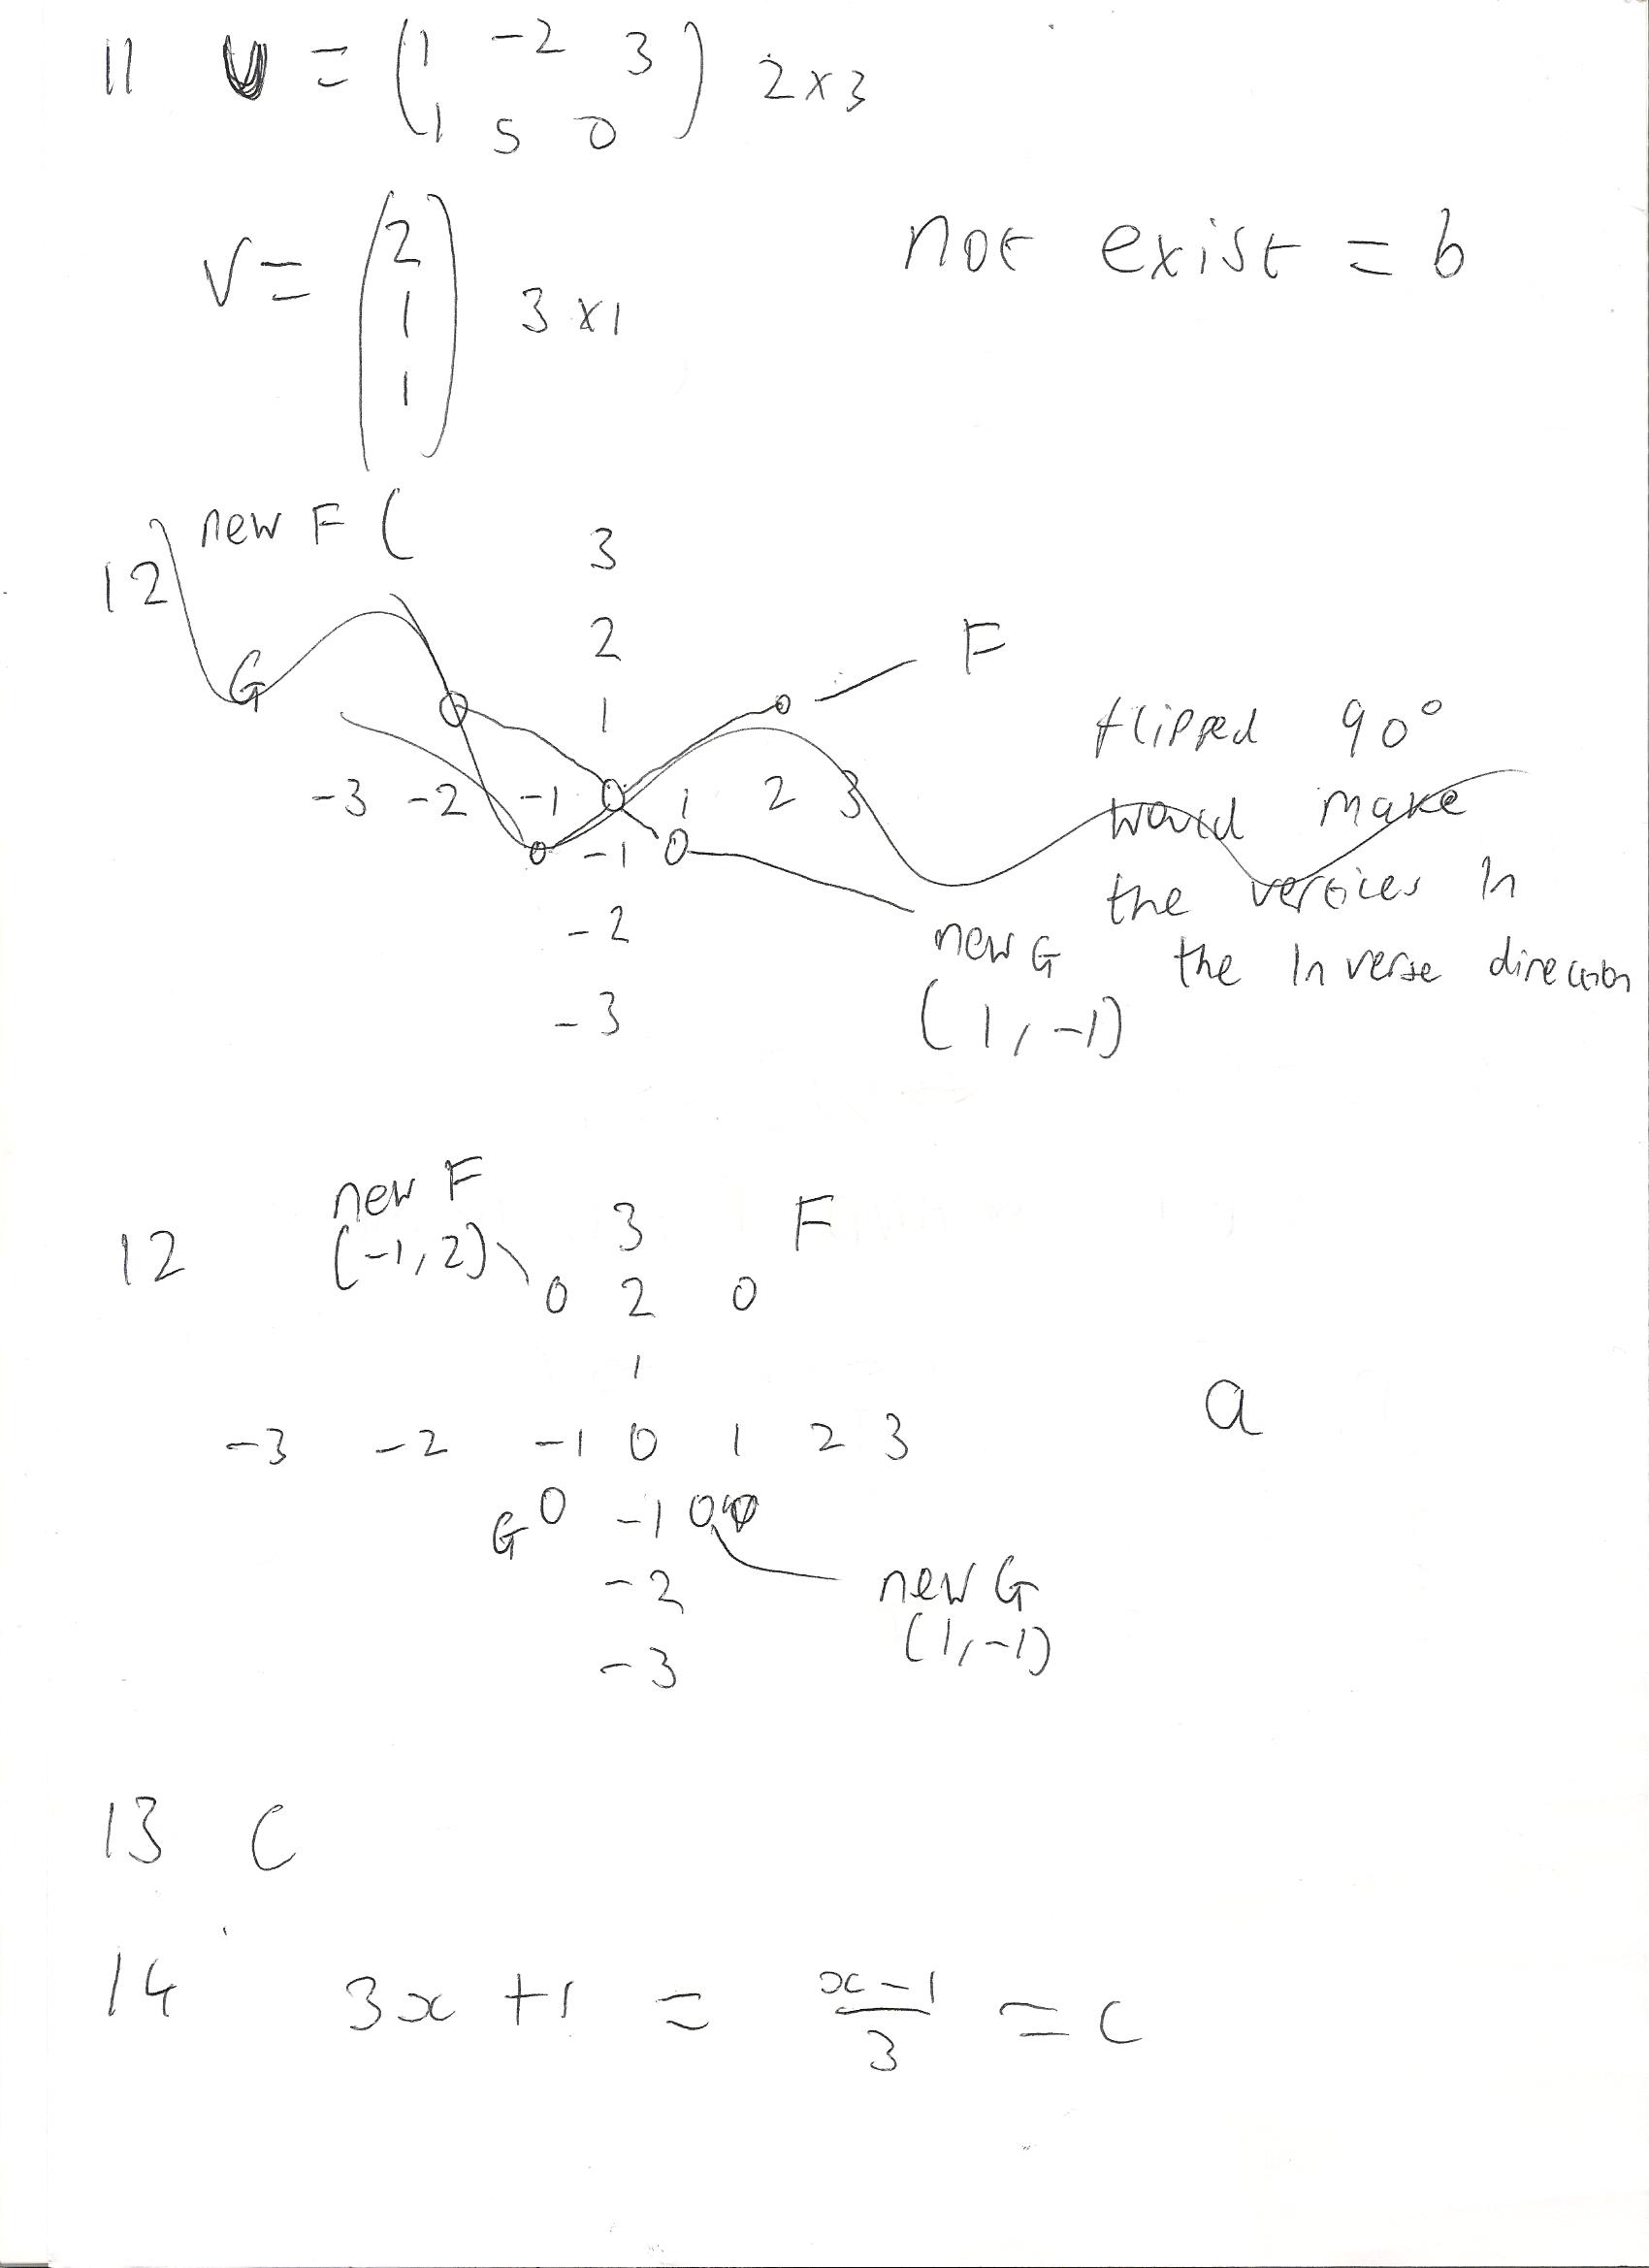 11 U = ( 1 -2 3
1 5 0 ) 2×3
V = ( 2
1
1 ) 3×1
not exist = b
12 new F (
G
3
2
1
F
-3 -2 -1 0 1 2 3
-1
-2
-3
new G
(1, -1)
flipped 90°
would make
the vertices in
the inverse direction
12 new F
(-1, 2)
3 F
0 2 0
1
-3 -2 -1 0 1 2 3
G 0 -1 0
-2
-3
new G
(1, -1)
a
13 C
14 3x + 1 = x - 1
3 = C